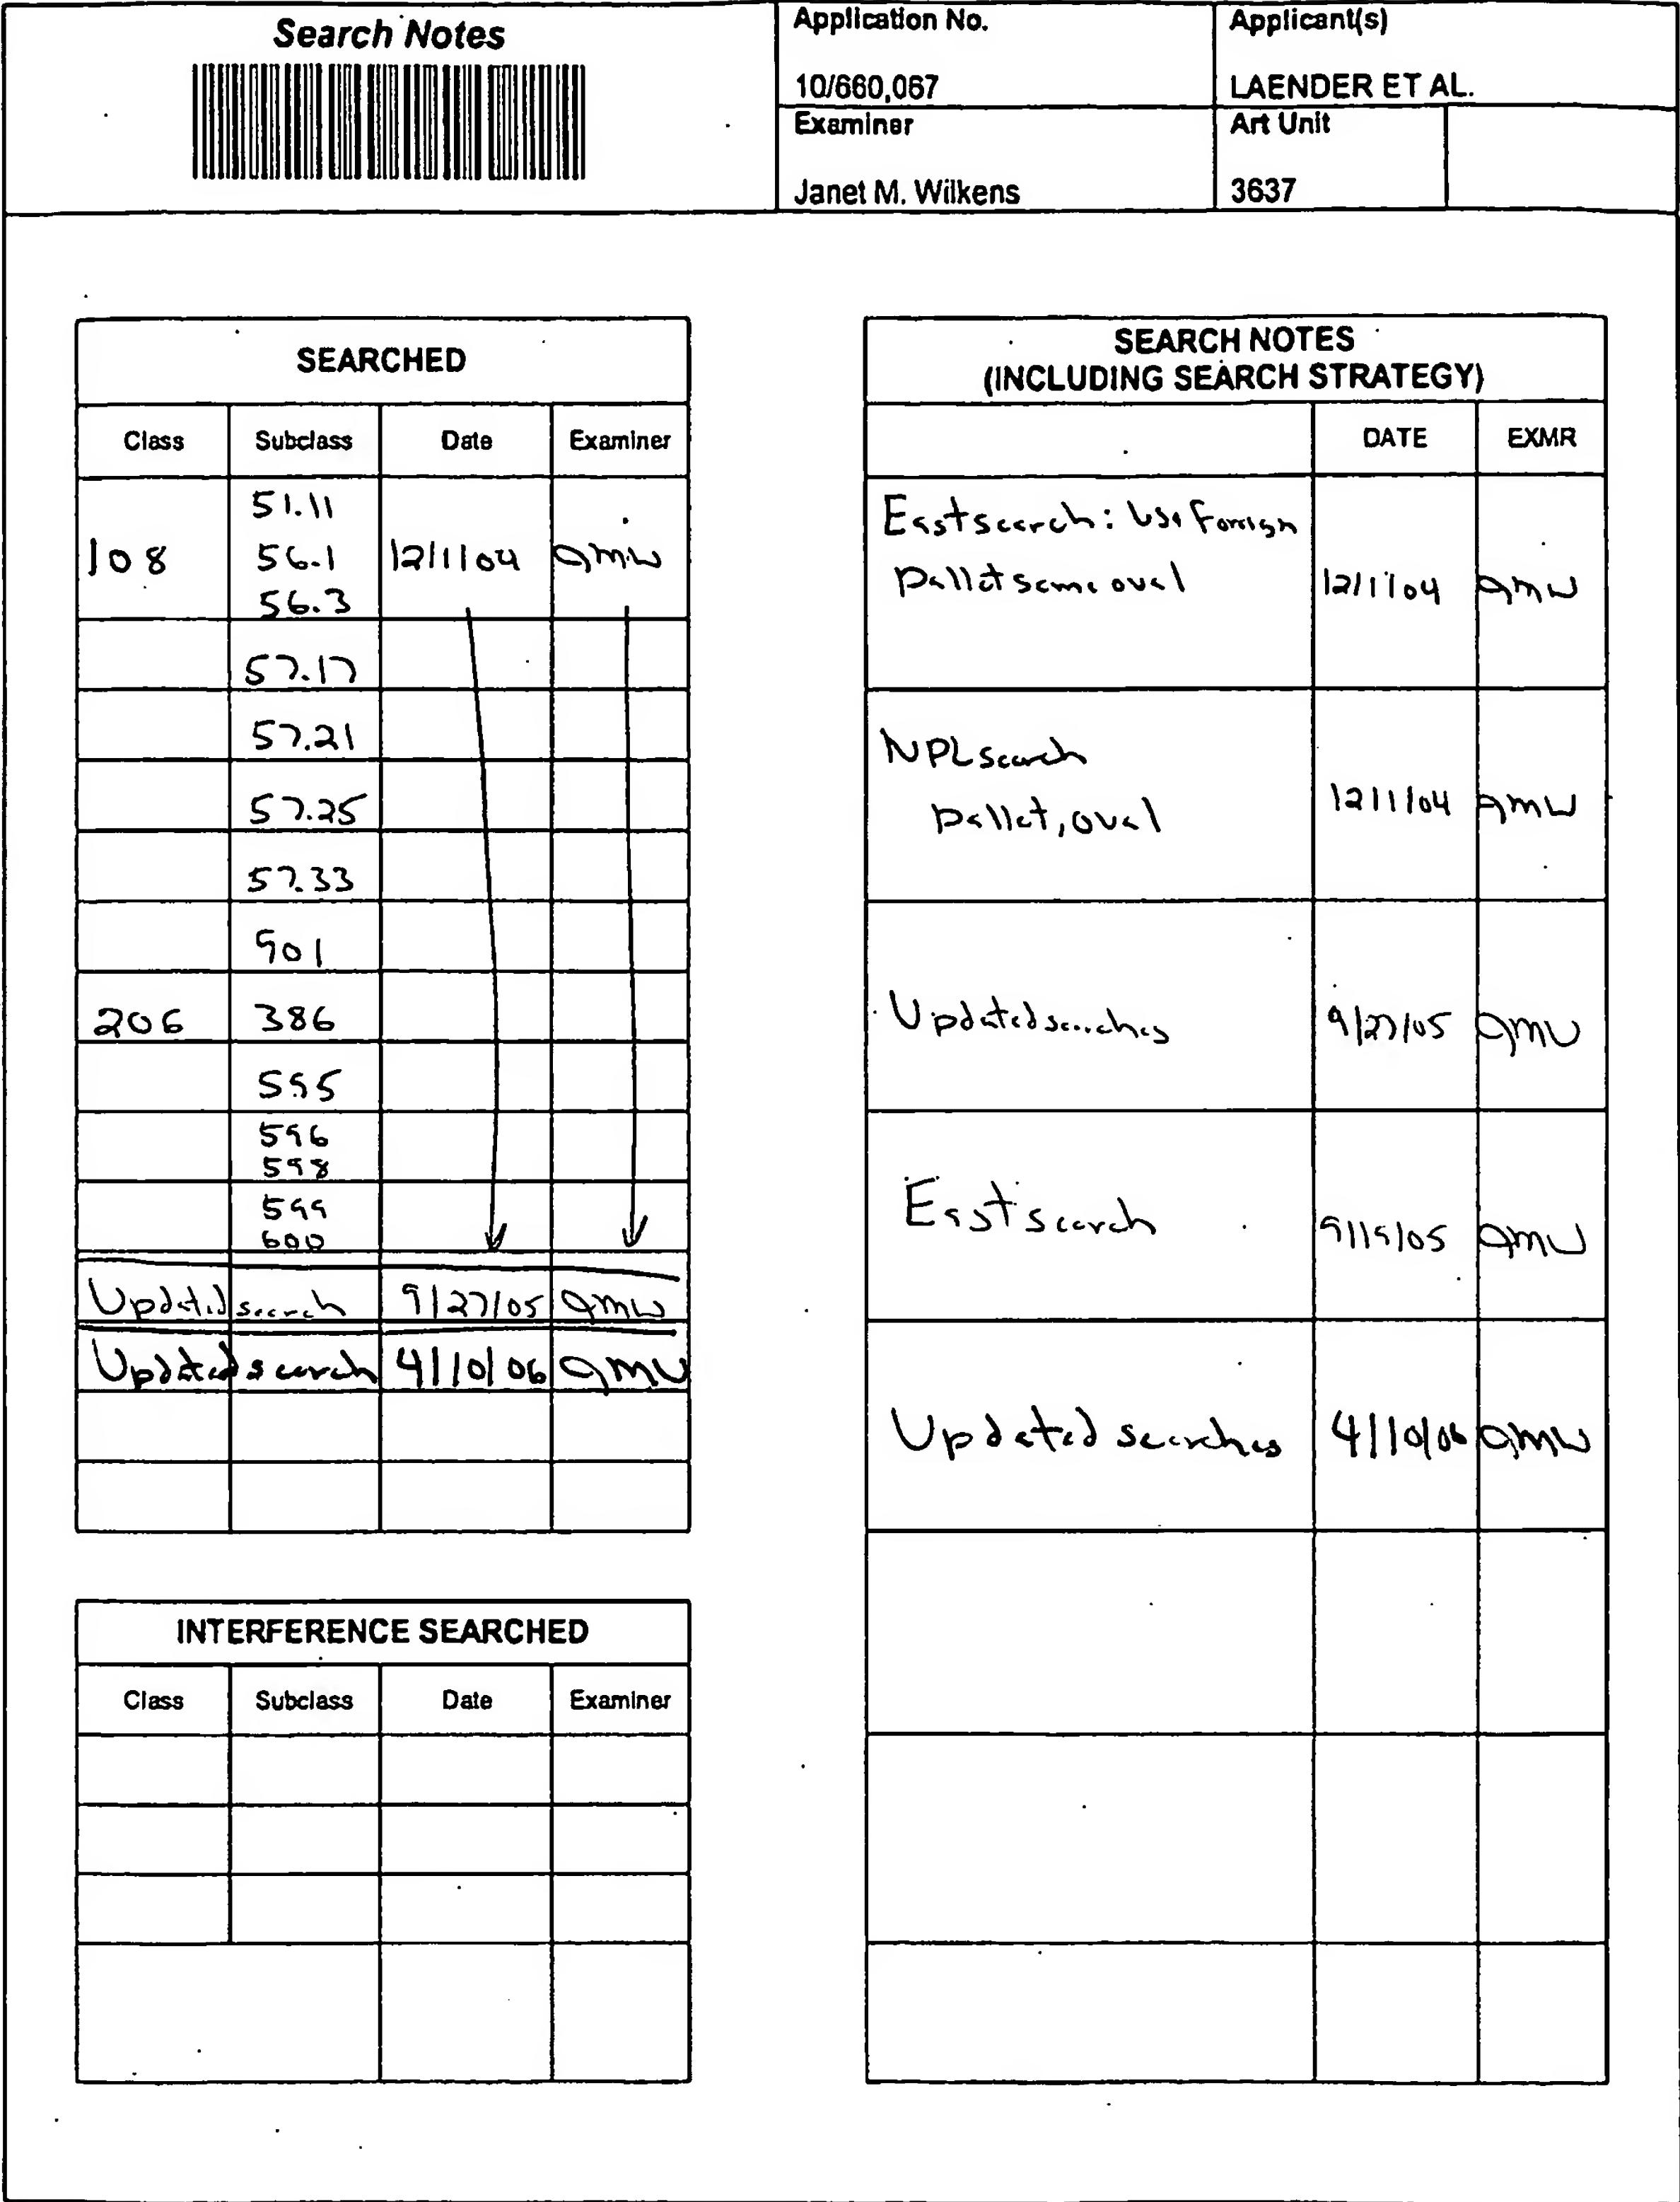 Search Notes
Application No.
10/660,067
Applicant(s)
LAENDER ET AL.
Examiner
Janet M. Wilkens
Art Unit
3637
SEARCHED
Class Subclass Date Examiner
51.11
108 56.1 12/1/04 JMW
56.3
57.17
57.21
57.25
57.33
901
206 386
595
596
598
599
600
Updated search 9/27/05 JMW
Updated search 4/10/06 JMW
INTERFERENCE SEARCHED
Class Subclass Date Examiner
SEARCH NOTES
(INCLUDING SEARCH STRATEGY)
DATE EXMR
East search: US + Foreign
pallet same oval 12/1/04 JMW
NPL search
pallet, oval 12/1/04 JMW
Updated searches 9/27/05 JMW
East search 9/19/05 JMW
Updated searches 4/10/06 JMW